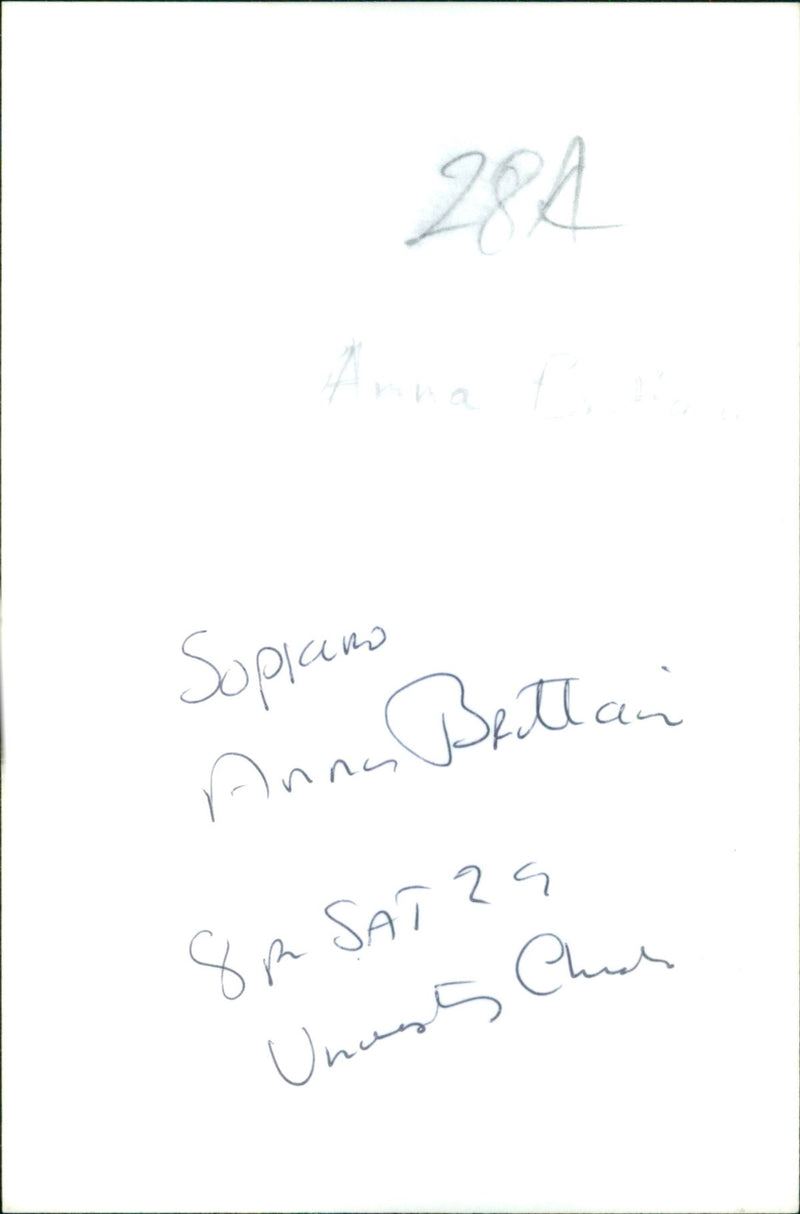 28A
Anna Brittain
Soprano
Anna Brittain
8pm SAT 29
University Church